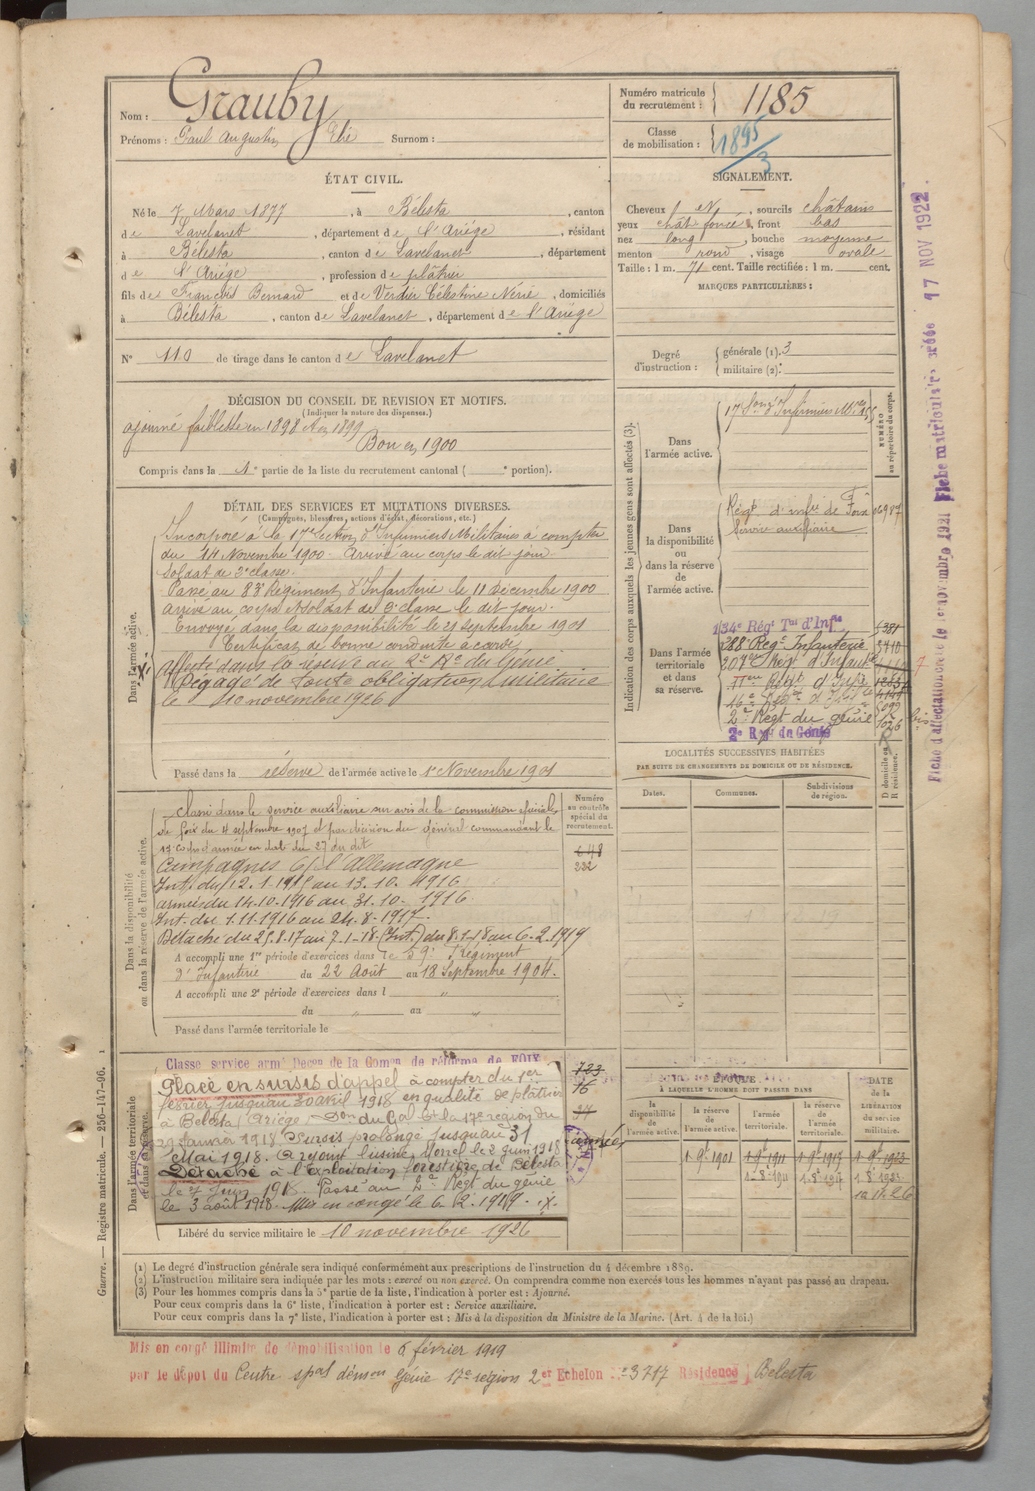 Nom : Grauby
Prénoms : Paul Augustin Elie Surnom :
Numéro matricule du recrutement : 1185
Classe de mobilisation : 1895/3
ÉTAT CIVIL.
Né le 7 Mars 1877, à Bélesta, canton
de Lavelanet, département de l'Ariège, résidant
à Bélesta, canton de Lavelanet, département
de l'Ariège, profession de plâtrier
fils de François Bernard et de Verdier Célestine Nérie, domiciliés
à Bélesta, canton de Lavelanet, département de l'Ariège
N° 110 de tirage dans le canton de Lavelanet
SIGNALEMENT.
Cheveux N, sourcils châtains
yeux chât foncés, front bas
nez long, bouche moyenne
menton rond, visage ovale
Taille : 1 m. 71 cent. Taille rectifiée : 1 m. cent.
MARQUES PARTICULIÈRES :
Degré d'instruction : générale (1). 3
militaire (2).
DÉCISION DU CONSEIL DE REVISION ET MOTIFS.
(Indiquer la nature des dispenses.)
ajourné faiblesse en 1898 et en 1899
Bon en 1900
Compris dans la 1e partie de la liste du recrutement cantonal ( e portion).
DÉTAIL DES SERVICES ET MUTATIONS DIVERSES.
(Campagnes, blessures, actions d'éclat, décorations, etc.)
Dans l'armée active.
Incorporé à la 17e section d'Infirmiers Militaires à compter
du 14 Novembre 1900. Arrivé au corps le dit jour
Soldat de 2e classe.
Passé au 83e Régiment d'Infanterie le 11 Décembre 1900
arrivé au corps et soldat de 2e classe le dit jour.
Envoyé dans la disponibilité le 21 septembre 1901
Certificat de bonne conduite accordé
Affecté dans la réserve au 2e Rt du Génie
Dégagé de toute obligation militaire
le 10 novembre 1926
Passé dans la réserve de l'armée active le 1er Novembre 1901
Indication des corps auxquels les jeunes gens sont affectés (3).
NUMÉRO au répertoire du corps.
Dans l'armée active.
17e Son d'Infirmiers Mres
Dans la disponibilité ou dans la réserve de l'armée active.
Régt d'infie de Foix
Service auxiliaire
Dans l'armée territoriale et dans sa réserve.
134e Régt Tal d'Infie
288e Régt Infanterie 3410
207e Régt d'Infanterie
2e Régt du génie 1026 bis
2e Rgt du Génie
LOCALITÉS SUCCESSIVES HABITÉES
PAR SUITE DE CHANGEMENTS DE DOMICILE OU DE RÉSIDENCE.
Dates. Communes. Subdivisions de région. D domicile ou R résidence.
Dans la disponibilité ou dans la réserve de l'armée active.
Classé dans le service auxiliaire sur avis de la commission spéciale
de foix du 4 septembre 1907 et par décision du général commandant le
17e corps d'armée en date du 27 du dit
Numéro au contrôle spécial du recrutement.
648
232
Campagnes C/ l'Allemagne
Int. du 12.1.1915 au 13.10.1916
armée du 14.10.1916 au 31.10.1916
Int. du 1.11.1916 au 24.8.1917
Détaché du 25.8.17 au 7-1-18 (Int.) du 8.1.18 au 6.2.1919
A accompli une 1re période d'exercices dans le 59e Régiment
d'Infanterie du 22 Août au 18 Septembre 1904.
A accompli une 2e période d'exercices dans l
du au
Passé dans l'armée territoriale le
Dans l'armée territoriale et dans sa réserve.
Classé service armé Décon de la Comon de réforme de FOIX
Placé en sursis d'appel à compter du 1er
février jusqu'au 30 avril 1918 en qualité de plâtrier
à Bélesta (Ariège). Don du Gal Ct la 17e région du
29 janvier 1918. Sursis prolongé jusqu'au 31
Mai 1918.
Détaché à l'exploitation forestière de Bélesta
le 7 Juin 1918. Passé au 2e Régt du génie
le 3 août 1918. Mis en congé le 6.2.1919.
Libéré du service militaire le 10 novembre 1926
723
16
ÉPOQUE
À LAQUELLE L'HOMME DOIT PASSER DANS
la disponibilité de l'armée active. la réserve de l'armée active. l'armée territoriale. la réserve de l'armée territoriale.
DATE DE LA LIBÉRATION du service militaire.
1 9e 1901 1 9e 1911 1 9e 1917 1 9e 1923
1 8e 1911 1 8e 1917 1 8e 1923
10.11.26
(1) Le degré d'instruction générale sera indiqué conformément aux prescriptions de l'instruction du 4 décembre 1889.
(2) L'instruction militaire sera indiquée par les mots : exercé ou non exercé. On comprendra comme non exercés tous les hommes n'ayant pas passé au drapeau.
(3) Pour les hommes compris dans la 5e partie de la liste, l'indication à porter est : Ajourné.
Pour ceux compris dans la 6e liste, l'indication à porter est : Service auxiliaire.
Pour ceux compris dans la 7e liste, l'indication à porter est : Mis à la disposition du Ministre de la Marine. (Art. 4 de la loi.)
Mis en congé illimité de démobilisation le 6 février 1919
par le dépôt du Centre spal démon Génie 17e région 2er Echelon N° 3717 Résidence Belesta
Guerre. — Registre matricule. — 256-147-96.
Fiche matriculaire créée 17 NOV 1922.